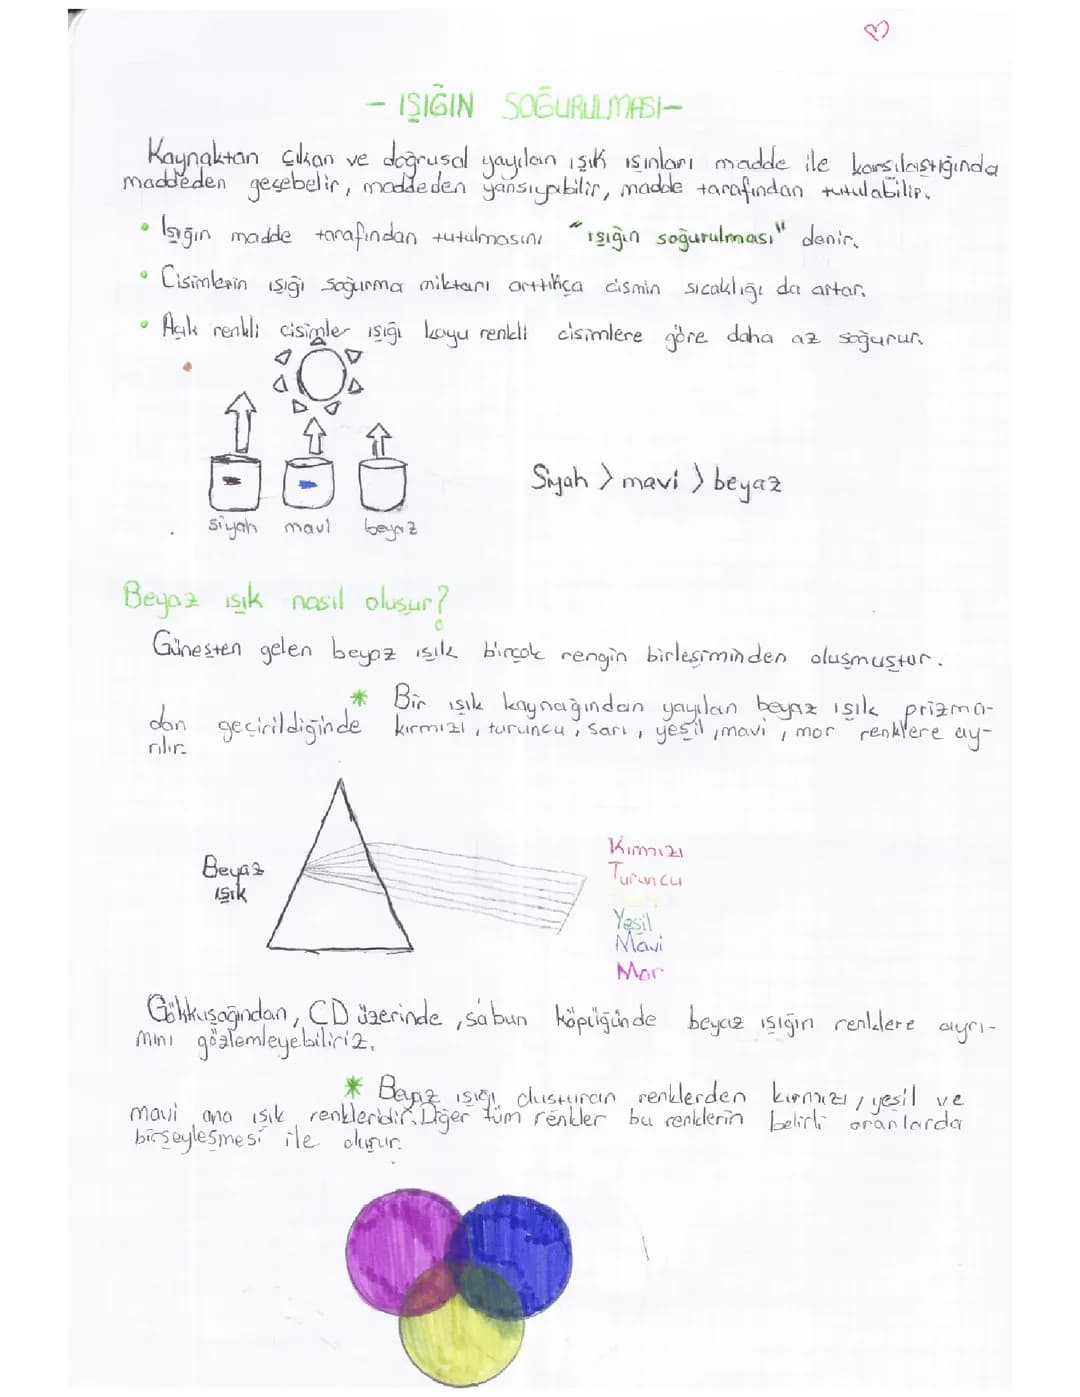 - IŞIĞIN SOĞURULMASI-
Kaynaktan çıkan ve doğrusal yayılan ışık ışınları madde ile karşılaştığında
maddeden geçebilir, maddeden yansıyabilir, madde tarafından tutulabilir.
• Işığın madde tarafından tutulmasını "ışığın soğurulması" denir.
• Cisimlerin ışığı soğurma miktarı arttıkça cismin sıcaklığı da artar.
• Açık renkli cisimler ışığı koyu renkli cisimlere göre daha az soğurur.
Siyah > mavi > beyaz
siyah mavi beyaz
Beyaz ışık nasıl oluşur?
Güneşten gelen beyaz ışık birçok rengin birleşiminden oluşmuştur.
* Bir ışık kaynağından yayılan beyaz ışık prizma-
dan geçirildiğinde kırmızı, turuncu, sarı, yeşil, mavi, mor renklere ay-
rılır.
Beyaz
ışık
Kırmızı
Turuncu
Yeşil
Mavi
Mor
Gökkuşağından, CD üzerinde, sabun köpüğünde beyaz ışığın renklere ayrı-
mını gözlemleyebiliriz.
* Beyaz ışığı oluşturan renklerden kırmızı, yeşil ve
mavi ana ışık renkleridir. Diğer tüm renkler bu renklerin belirli oranlarda
birşeyleşmesi ile oluşur.